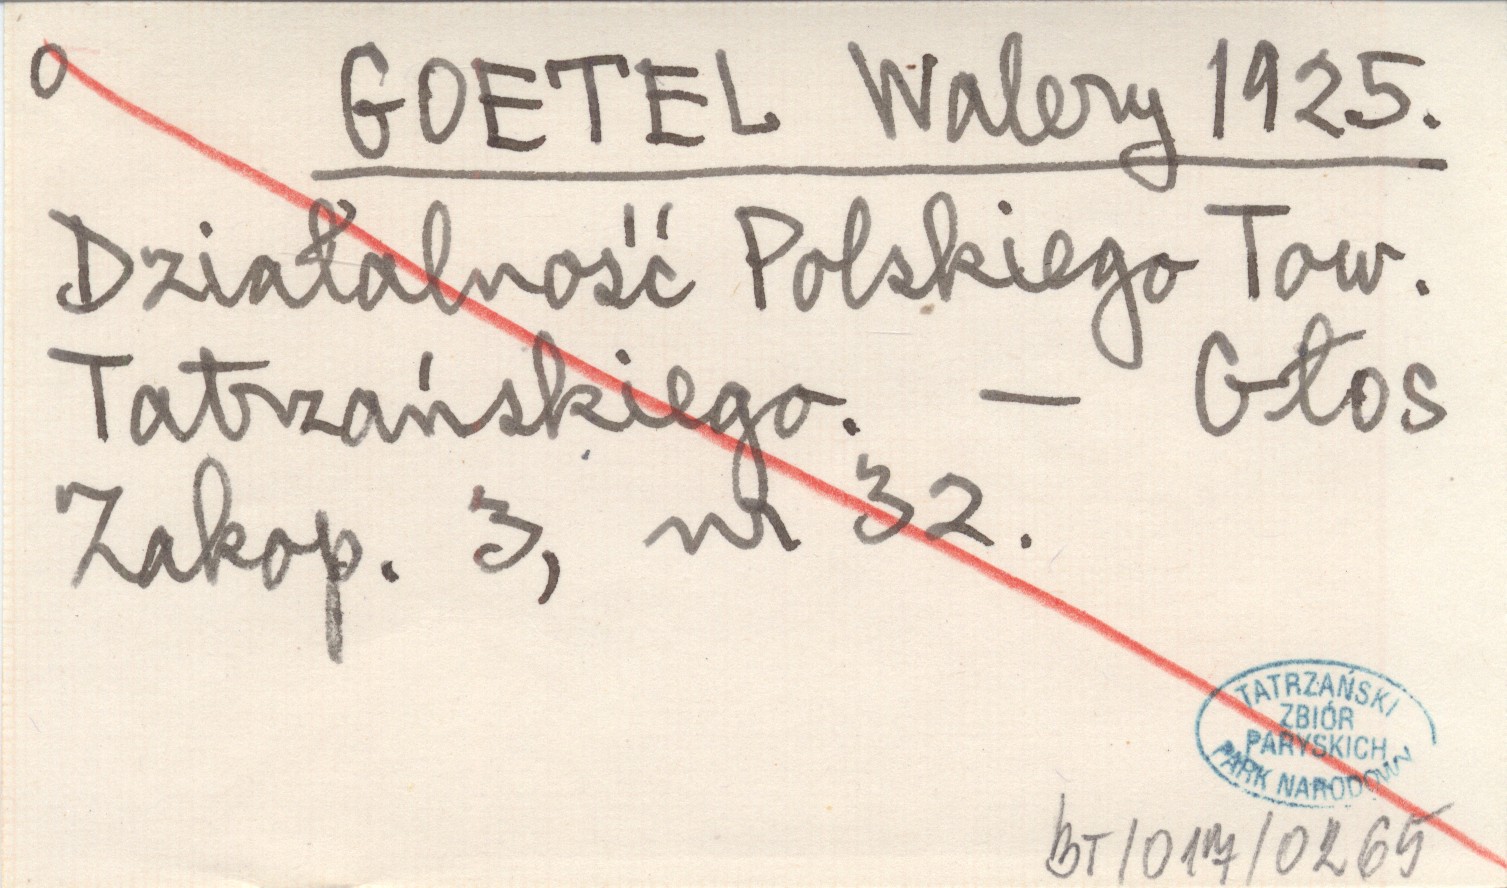 O GOETEL Walery 1925.
Działalność Polskiego Tow.
Tatrzańskiego. — Głos
Zakop. 3, nr 32.
TATRZAŃSKI
ZBIÓR
PARYSKICH
PARK NARODOWY
BT/017/0265